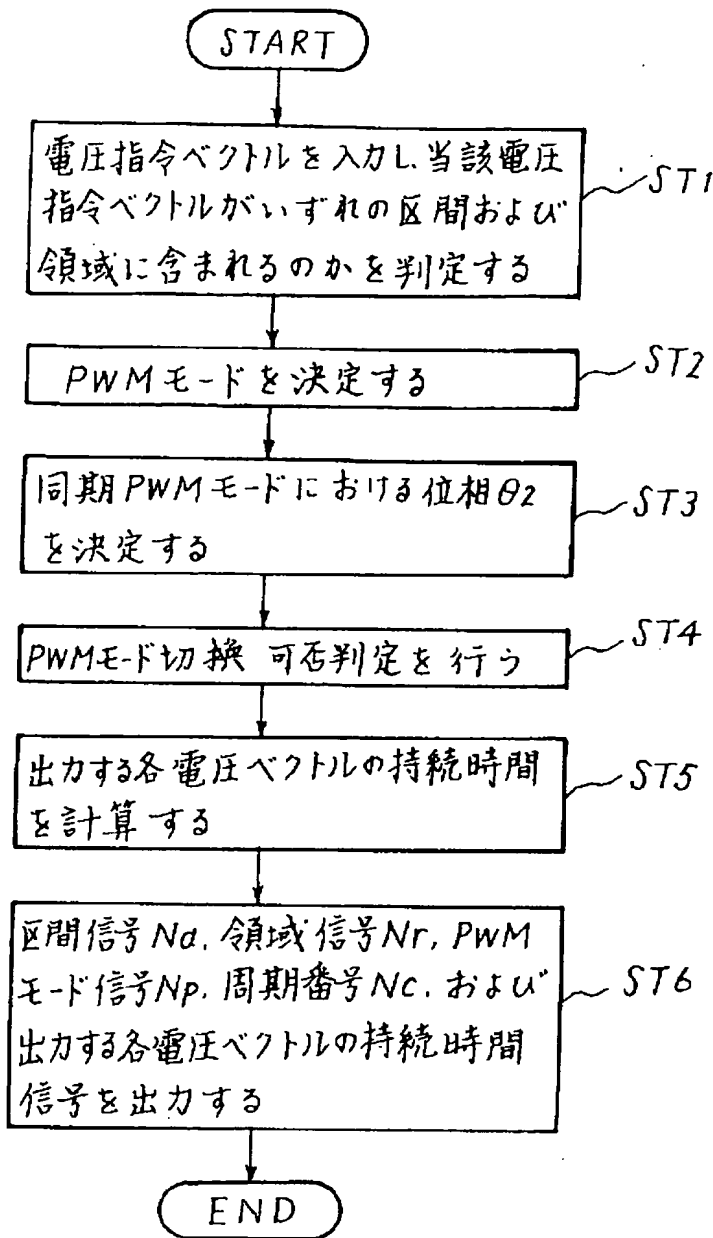 START
電圧指令ベクトルを入力し、当該電圧
指令ベクトルがいずれの区間および
領域に含まれるのかを判定する
ST1
PWMモードを決定する
ST2
同期PWMモードにおける位相θ2
を決定する
ST3
PWMモード切換 可否判定を行う
ST4
出力する各電圧ベクトルの持続時間
を計算する
ST5
区間信号Nd、領域信号Nr、PWM
モード信号Np、周期番号Nc、および
出力する各電圧ベクトルの持続時間
信号を出力する
ST6
END